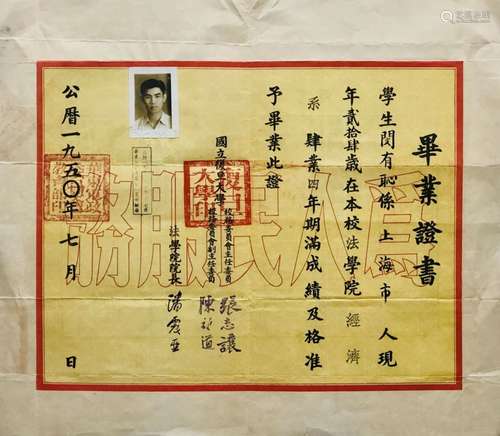 畢業證書
學生閔有恥係上海市人現
年貳拾肆歲在本校法學院經濟
系肄業四年期滿成績及格准
予畢業此證
國立復旦大學
校務委員會主任委員 張志讓
校務委員會副主任委員 陳望道
法學院院長 潘震亞
公曆一九五〇年七月 日
為人民服務